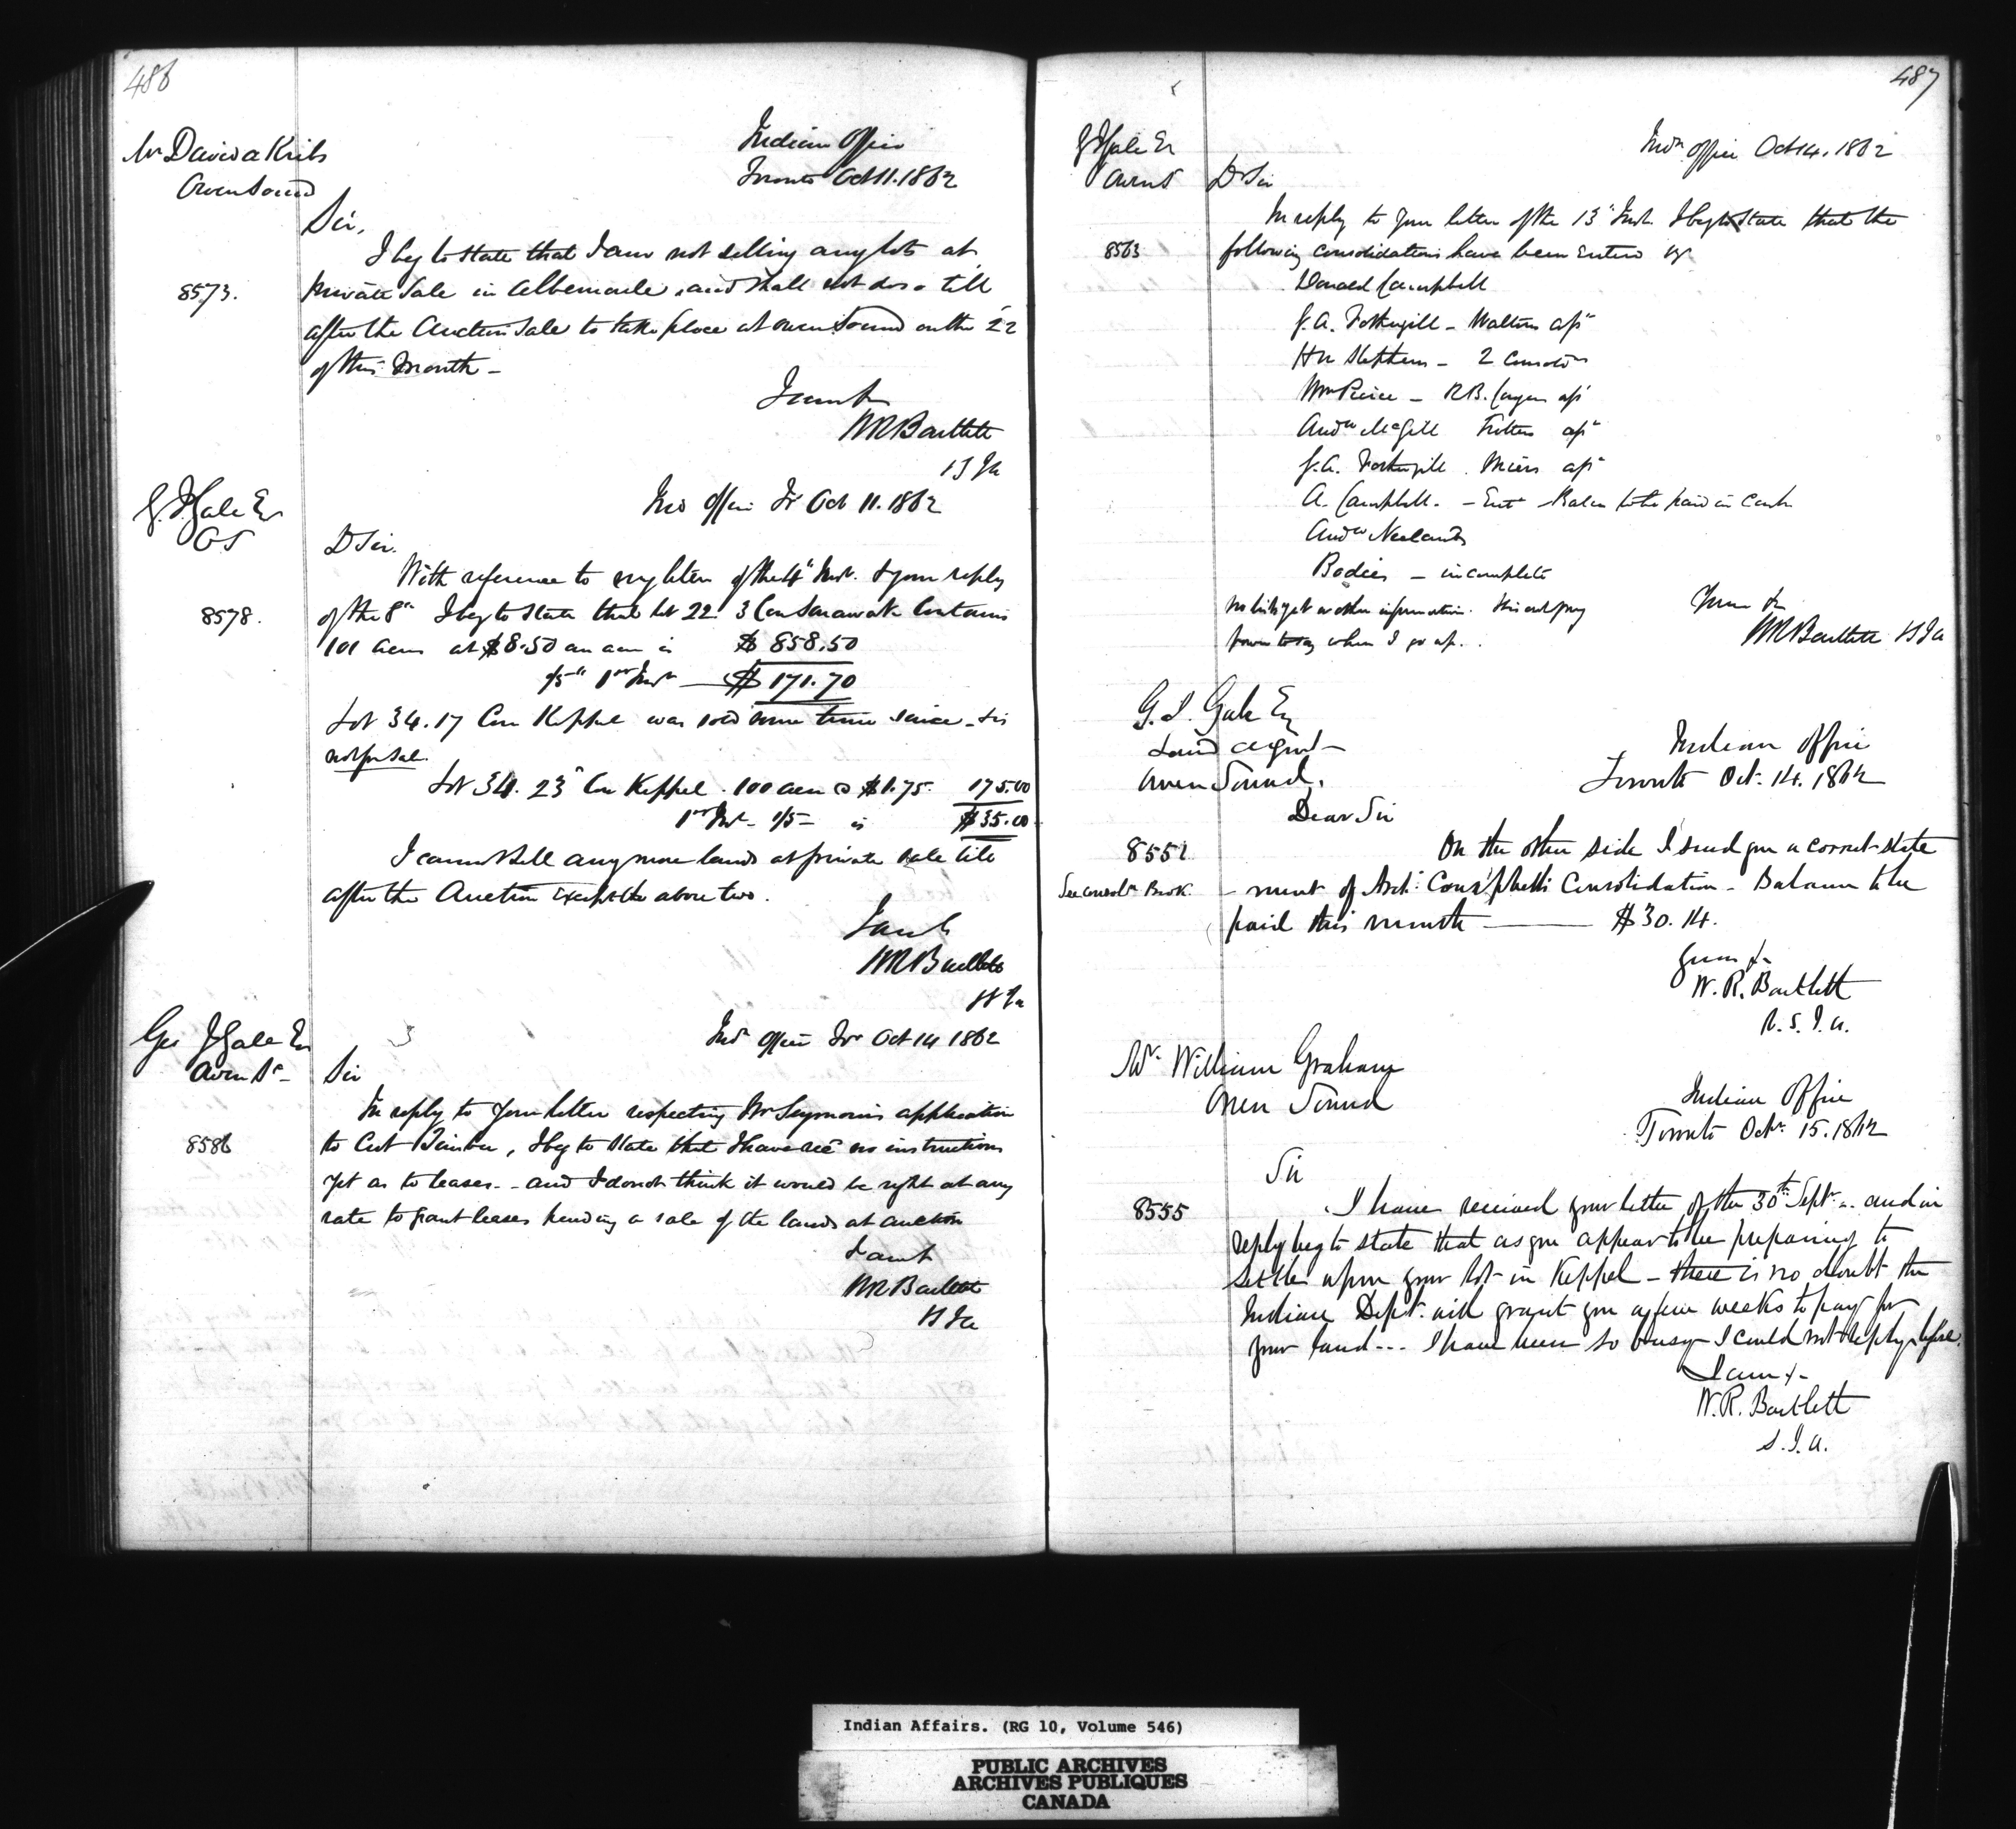 486
Mr David a Kribs
Owen Sound
Indian Office
Toronto Oct 11. 1862
Sir,
8573.
I beg to state that I am not selling any lots at
private Sale in Albemarle, and shall not do so till
after the Auction Sale to take place at Owen Sound on the 22
of this month -
I am &c
WRBartlett
VSIA
G. J. Gale Er
OS
Ind Office Tr Oct 11. 1862
D Sir.
8578.
With reference to my letter of the 4" Inst. & your reply
of the 8th I beg to state that lot 22 3 Con Sarawak Contains
101 acres at $8.50 an acre is $ 858.50
1/5th 1st Inst — $ 171.70
Lot 34. 17 Con Keppel was sold some time since - & is
not for sale.
Lot 34. 23" Con Keppel. 100 acres @ $1.75. 175.00
1st Inst - 1/5 - is $35.00
I cannot sell any more lands at private sale till
after the Auction Except the above two.
I am &c
WRBartlett
VSIa
Geo J Gale Er
Owen Sd -
Ind Office Tro Oct 14 1862
Sir
8586
In reply to your letter respecting Mr Seymours application
to Cut Timber, I beg to state that I have recd no instructions
yet as to leases. - and I do not think it would be right at any
rate to grant leases pending a sale of the lands at auction
I am &
WRBartlett
VSIa
487
G J Gale Er
Owen S
Indn Office Oct 14. 1862
D Sir
8563
In reply to your letter of the 13" Inst. I beg to state that the
following consolidations have been Entered up
Donald Campbell
J. A. Fothergill - Walters apn
Hn Stephens - 2 Consolns
Wm Peirce - R.B. apn
Andw McGill apn
J. A. Fothergill. Miers apn
A. Campbell. - Ent Balce to be paid in Cash
Andw Neelands
Bodies - incomplete
no lists yet or other information.
when I go up..
Yours &c
WRBartlett VSIa
G. J. Gale Er
Land Agent -
Owen Sound.
Indian Office
Toronto Oct. 14. 1862
Dear Sir
8551
See Consoln Book.
On the other side I send you a correct state
- ment of Arch: Campbell's Consolidation - Balance to be
paid this month ——— $30.14.
Yours &c
W. R. Bartlett
V. S. I. a.
Mr. William Graham
Owen Sound
Indian Office
Toronto Octr. 15. 1862
Sir
8555
I have received your letter of the 30th Septr. - and in
reply beg to state that as you appear to be preparing to
settle upon your lot in Keppel - there is no doubt the
Indian Dept. will grant you a few weeks to pay for
your land - - - I have been so busy I could not reply before.
I am &c
W. R. Bartlett
S. I. a.
Indian Affairs. (RG 10, Volume 546)
PUBLIC ARCHIVES
ARCHIVES PUBLIQUES
CANADA